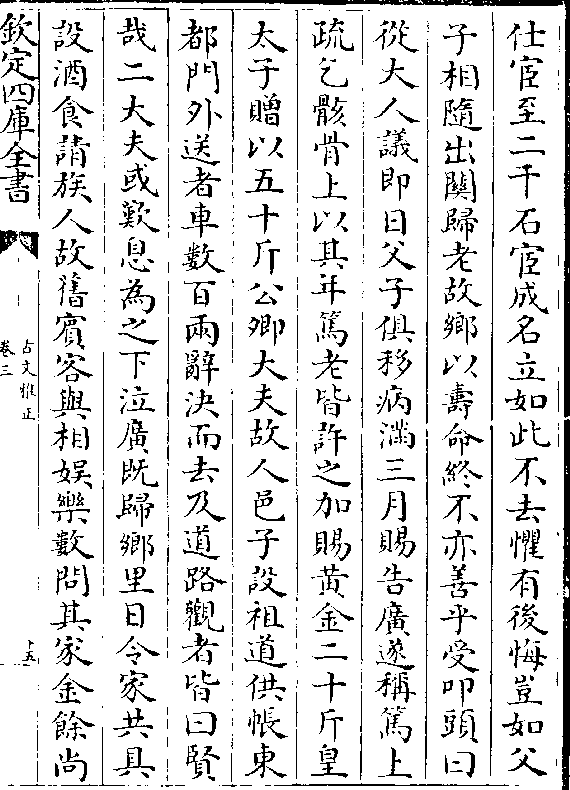 仕宦至二千石宦成名立如此不去懼有後悔豈如父
子相隨出關歸老故鄉以壽命終不亦善乎受叩頭曰
從大人議即日父子俱移病滿三月賜告廣遂稱篤上
疏乞骸骨上以其年篤老皆許之加賜黃金二十斤皇
太子贈以五十斤公卿大夫故人邑子設祖道供帳東
都門外送者車數百兩辭決而去及道路觀者皆曰賢
哉二大夫或歎息為之下泣廣既歸鄉里日令家共具
設酒食請族人故舊賓客與相娛樂數問其家金餘尚
欽定四庫全書
古文雅正
卷三
十五